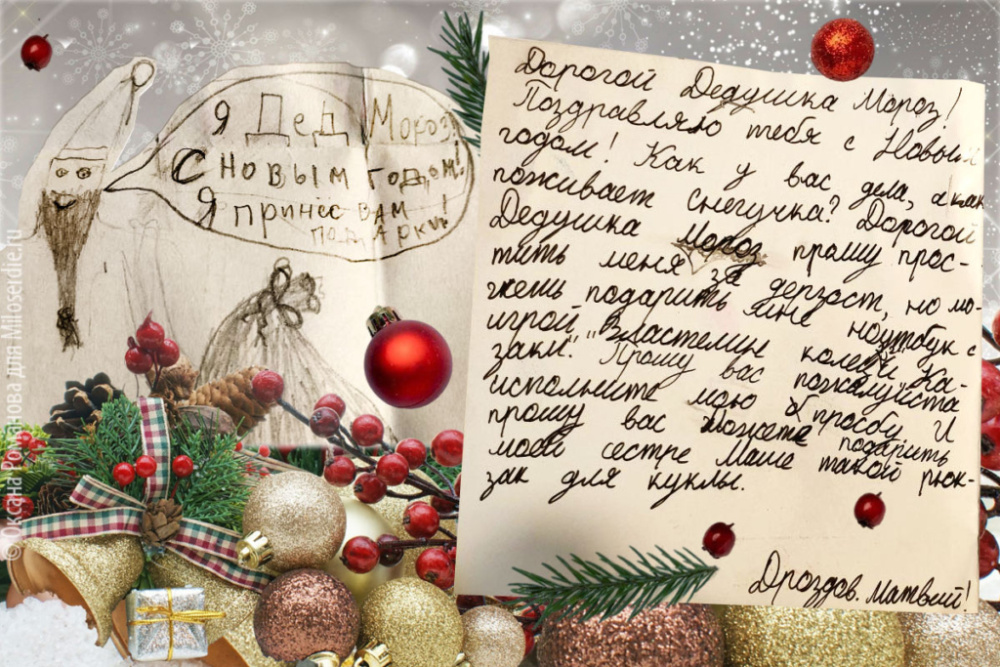 Я Дед Мороз
С новым годом!
Я принес вам
подарки!
Дорогой Дедушка Мороз!
Поздравляю тебя с Новым
годом! Как у вас дела, а как
поживает Снегучка? Дорогой
Дедушка Мороз прошу прос-
тить меня за дерзост, но мо-
жешь подарить мне ноутбук с
игрой "Властелин колец и Ка-
заки." Прошу вас пожалуйста
исполните мою просбу. И
прошу вас можете подарить
моей сестре Маше такой рюк-
зак для куклы.
Дроздов. Матвей!
© Оксана Романова для Miloserdie.ru